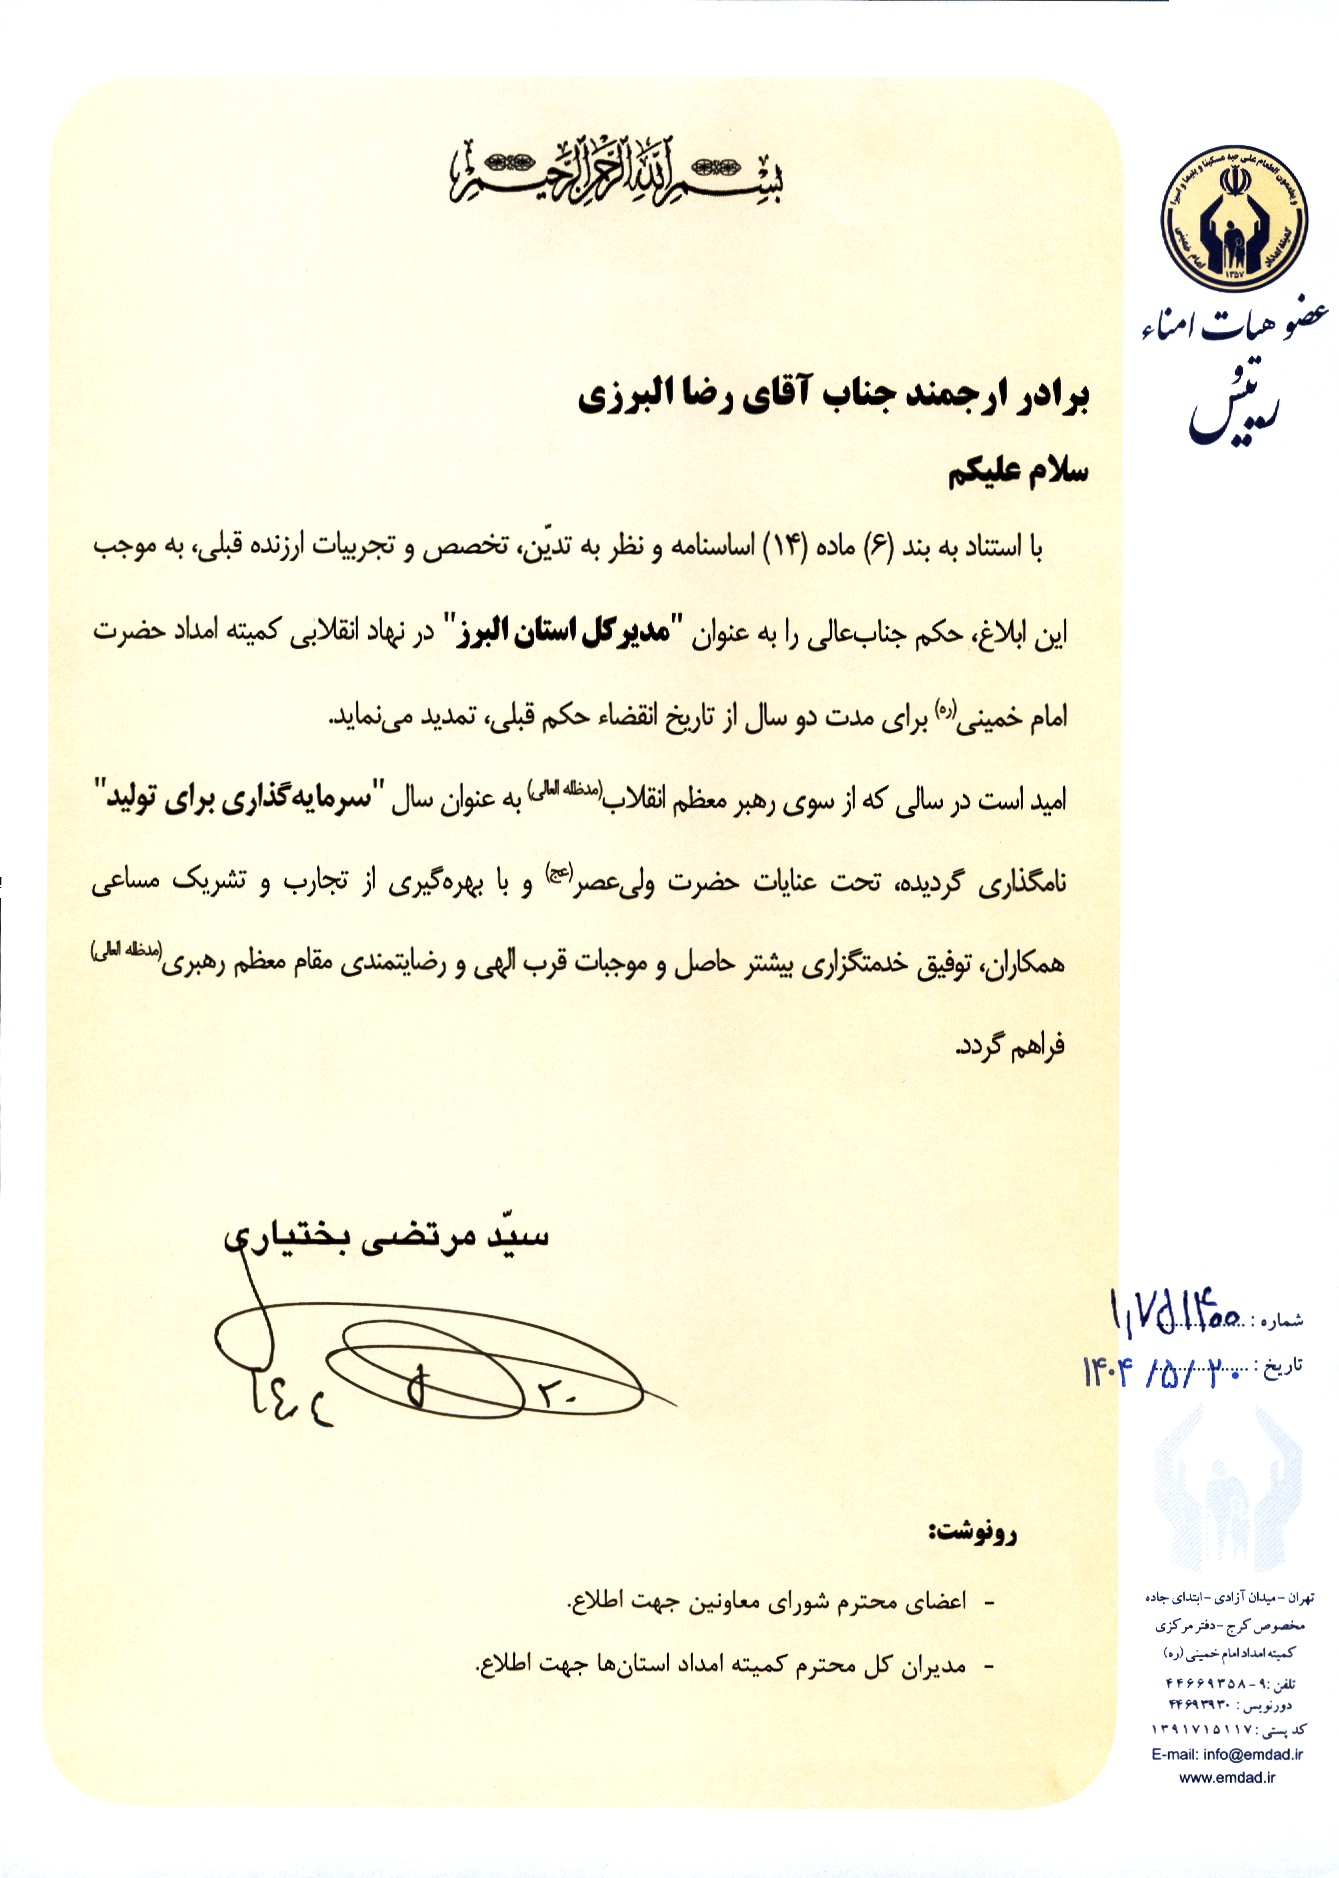 بسم الله الرحمن الرحیم
و یطعمون الطعام علی حبه مسکینا و یتیما و اسیرا
کمیته امداد امام خمینی
۱۳۵۷
عضو هیات امناء
و
رئیس
برادر ارجمند جناب آقای رضا البرزی
سلام علیکم
با استناد به بند (۶) ماده (۱۴) اساسنامه و نظر به تدیّن، تخصص و تجربیات ارزنده قبلی، به موجب
این ابلاغ، حکم جناب‌عالی را به عنوان "مدیرکل استان البرز" در نهاد انقلابی کمیته امداد حضرت
امام خمینی(ره) برای مدت دو سال از تاریخ انقضاء حکم قبلی، تمدید می‌نماید.
امید است در سالی که از سوی رهبر معظم انقلاب(مدظله العالی) به عنوان سال "سرمایه‌گذاری برای تولید"
نامگذاری گردیده، تحت عنایات حضرت ولی‌عصر(عج) و با بهره‌گیری از تجارب و تشریک مساعی
همکاران، توفیق خدمتگزاری بیشتر حاصل و موجبات قرب الهی و رضایتمندی مقام معظم رهبری(مدظله العالی)
فراهم گردد.
سیّد مرتضی بختیاری
۱۴۰۴ ۵ ۲۰
شماره :
تاریخ : ۱۴۰۴/۵/۲۰
رونوشت:
- اعضای محترم شورای معاونین جهت اطلاع.
- مدیران کل محترم کمیته امداد استان‌ها جهت اطلاع.
تهران - میدان آزادی - ابتدای جاده
مخصوص کرج - دفتر مرکزی
کمیته امداد امام خمینی (ره)
تلفن : ۹-۴۴۶۶۹۳۵۸
دورنویس : ۴۴۶۹۳۹۳۰
کد پستی : ۱۳۹۱۷۱۵۱۱۷
E-mail: info@emdad.ir
www.emdad.ir